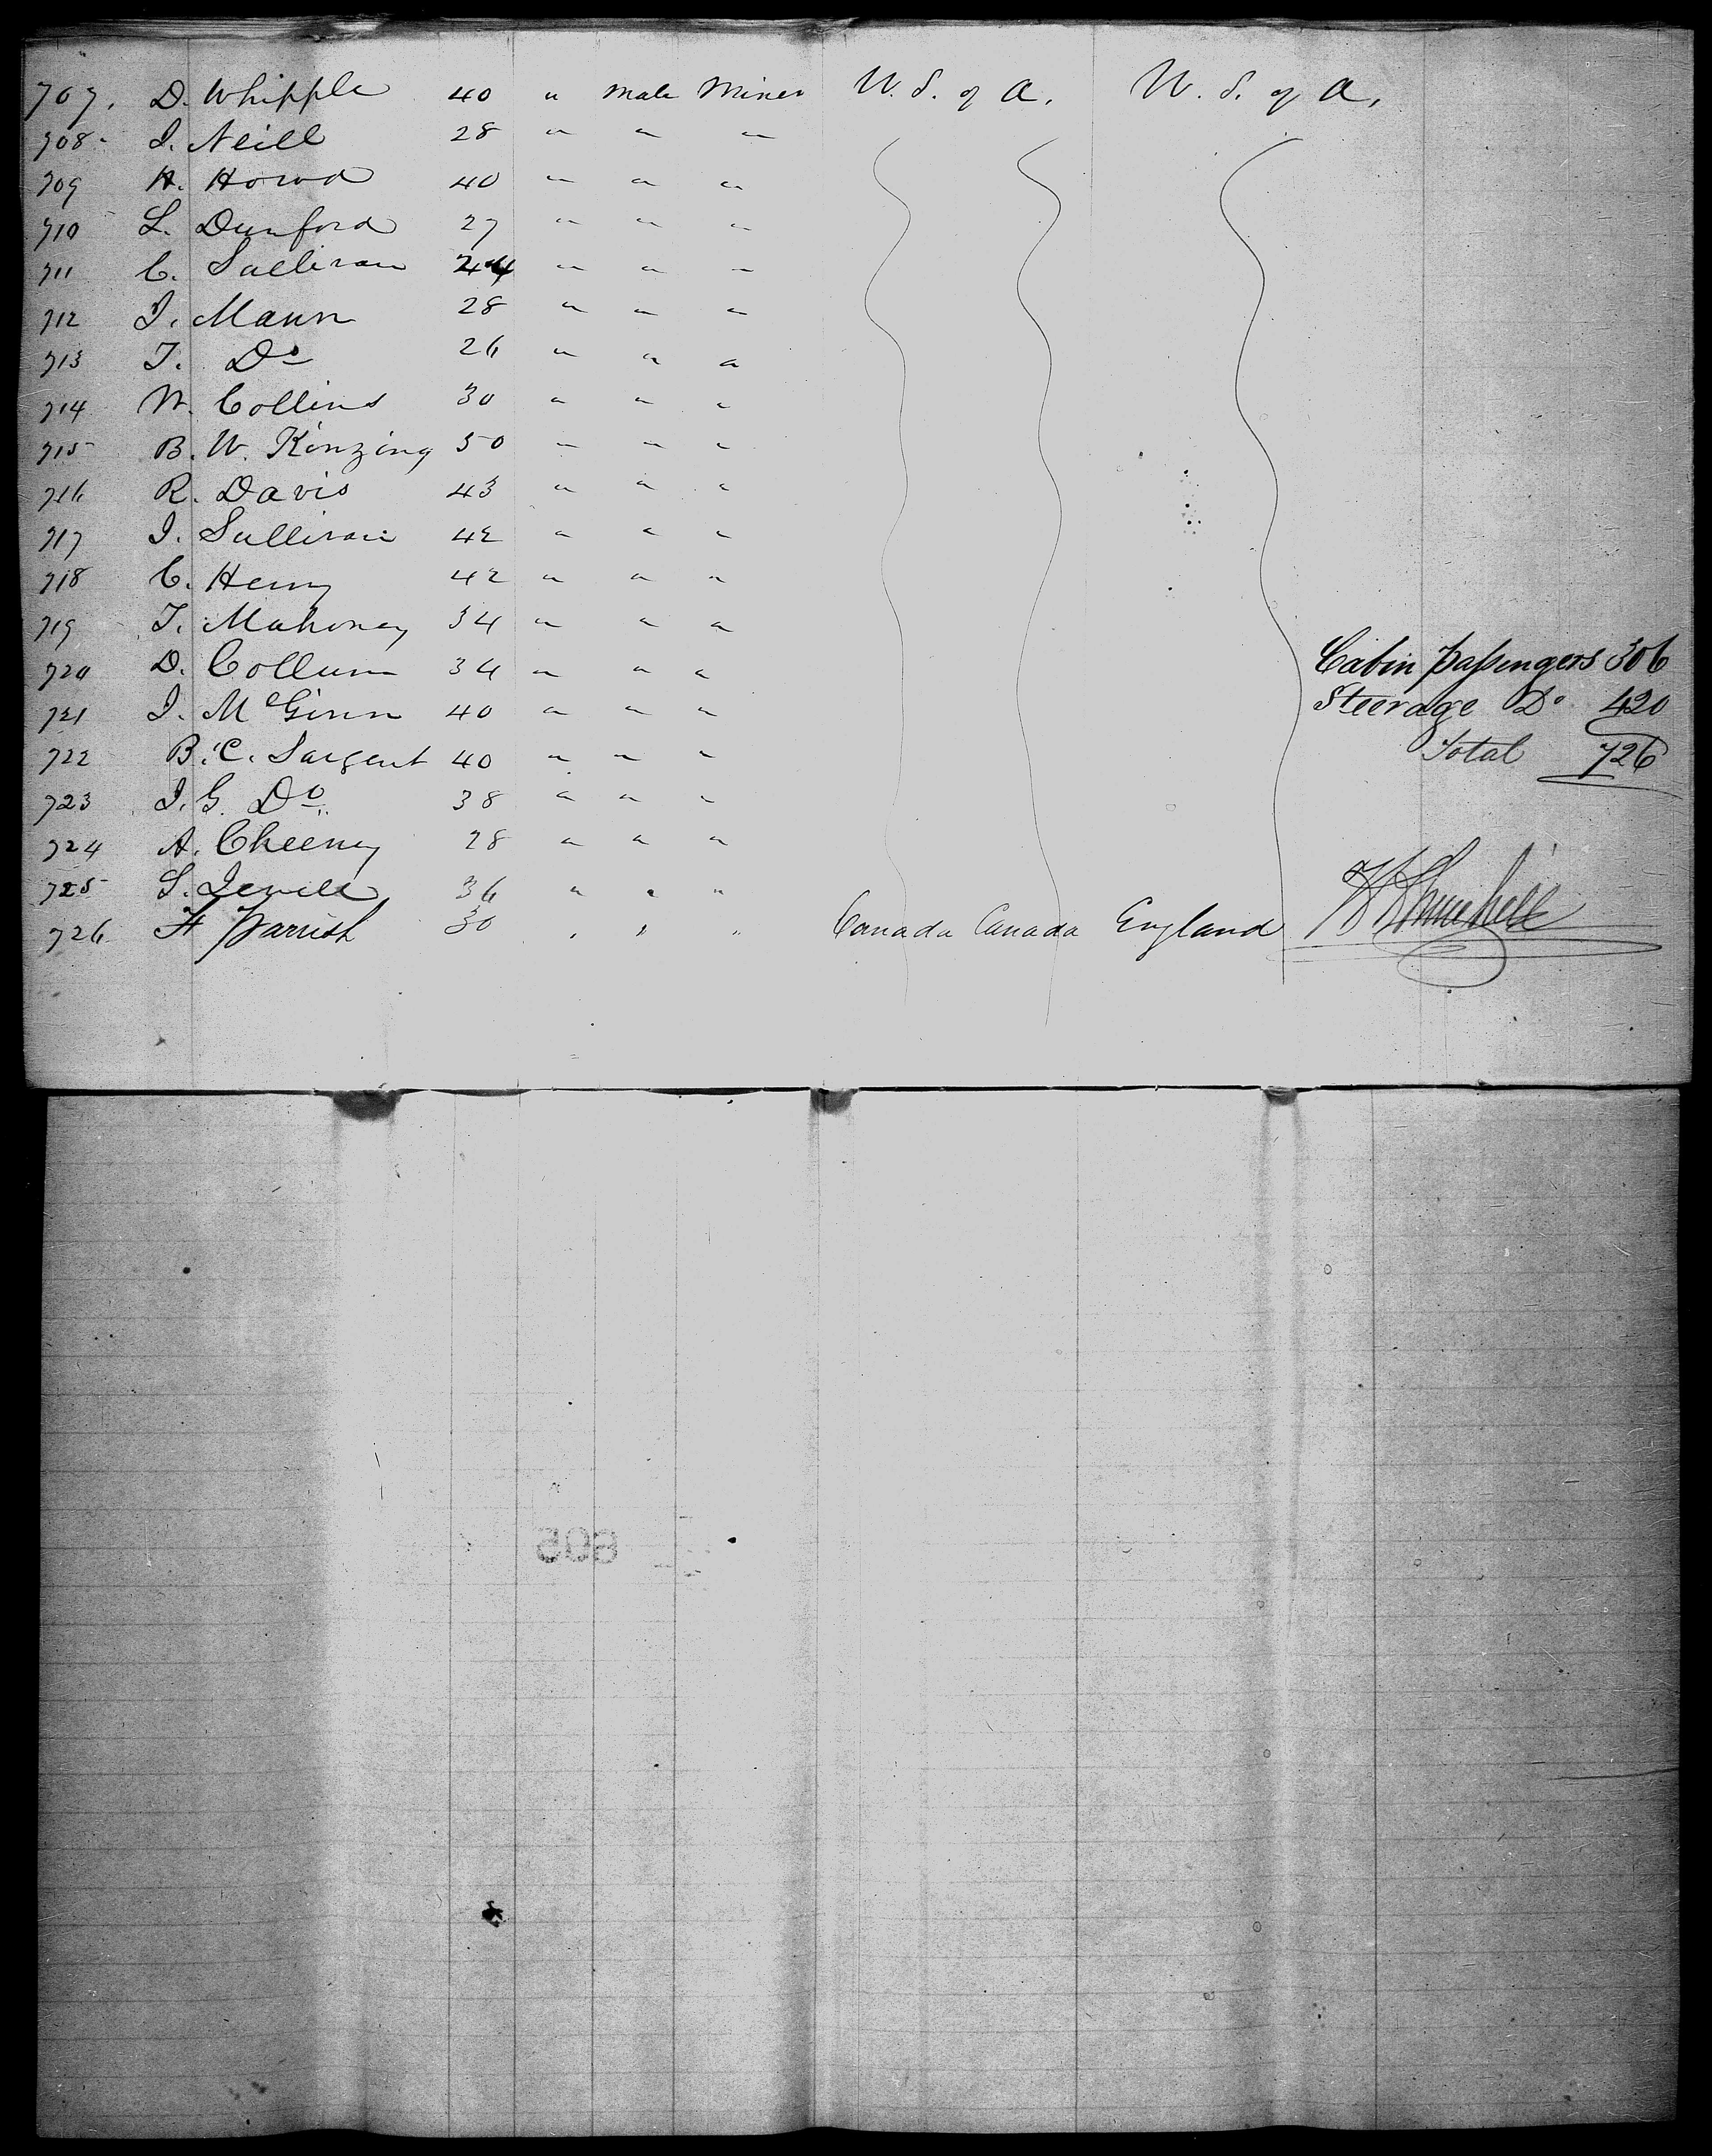 707. D. Whipple 40 " male Miner U. S. of A. U. S. of A.
708 J. Neill 28 " " "
709 H. Howd 40 " " "
710 L. Dunford 27 " " "
711 C. Sullivan 44 " " "
712 J. Mann 28 " " "
713 T. Do 26 " " "
714 W. Collins 30 " " "
715 B. W. Kinzing 50 " " "
716 R. Davis 43 " " "
717 J. Sullivan 42 " " "
718 C. Henry 42 " " "
719 T. Mahoney 34 " " "
720 D. Collum 34 " " "
721 J. McGinn 40 " " "
722 B. C. Sargent 40 " " "
723 J. G. Do 38 " " "
724 A. Cheeney 28 " " "
725 S. 36 " " "
726 H Parrish 30 " " " Canada Canada England
Cabin passengers 306
Steerage Do 420
Total 726
605